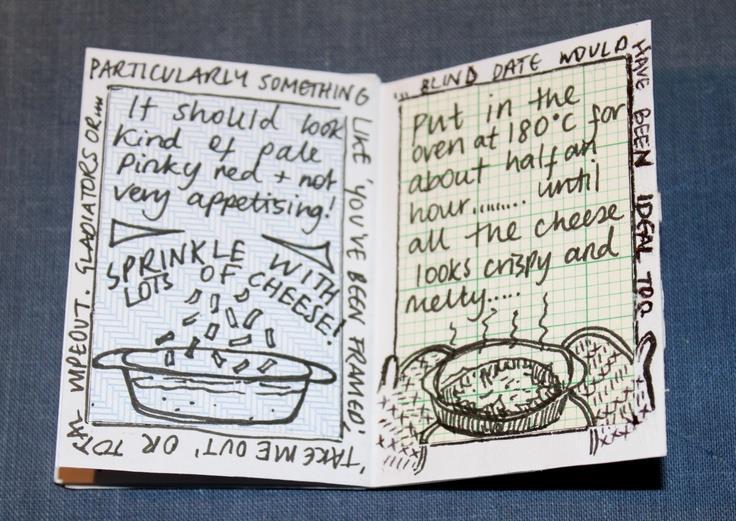 PARTICULARLY SOMETHING
LIKE 'YOU'VE BEEN FRAMED',
'TAKE ME OUT' OR TOTAL
WIPEOUT. GLADIATORS OR....
It should look
kind of pale
pinky red + not
very appetising!
SPRINKLE WITH
LOTS OF CHEESE!
... BLIND DATE WOULD
HAVE BEEN IDEAL TOO.
Put in the
oven at 180°C for
about half an
hour......... until
all the cheese
looks crispy and
melty.....